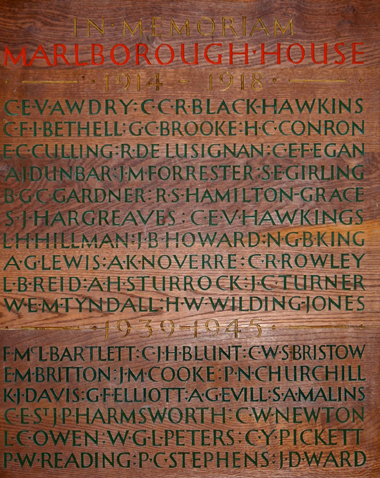 IN MEMORIAM
MARLBOROUGH·HOUSE
1914 · 1918
C·E·V·AWDRY:C·C·R·BLACK-HAWKINS
C·F·I·BETHELL:G·C·BROOKE:H·C·CONRON
E·C·CULLING:R·DE LUSIGNAN:G·E·F·EGAN
A·J·DUNBAR:J·M·FORRESTER:S·E·GIRLING
B·G·C·GARDNER:R·S·HAMILTON-GRACE
S·J·HARGREAVES:C·E·V·HAWKINGS
L·H·HILLMAN:J·B·HOWARD:N·G·B·KING
A·G·LEWIS:A·K·NOVERRE:C·R·ROWLEY
L·B·REID:A·H·STURROCK:J·C·TURNER
W·E·M·TYNDALL:H·W·WILDING-JONES
·1939-1945·
F·McL·BARTLETT:C·J·H·BLUNT:C·W·S·BRISTOW
E·M·BRITTON:J·M·COOKE:P·N·CHURCHILL
K·J·DAVIS:G·F·ELLIOTT:A·G·EVILL:S·AMALINS
C·E·ST J·P·HARMSWORTH:C·W·NEWTON
L·C·OWEN:W·G·L·PETERS:C·Y·PICKETT
P·W·READING:P·C·STEPHENS:J·D·WARD